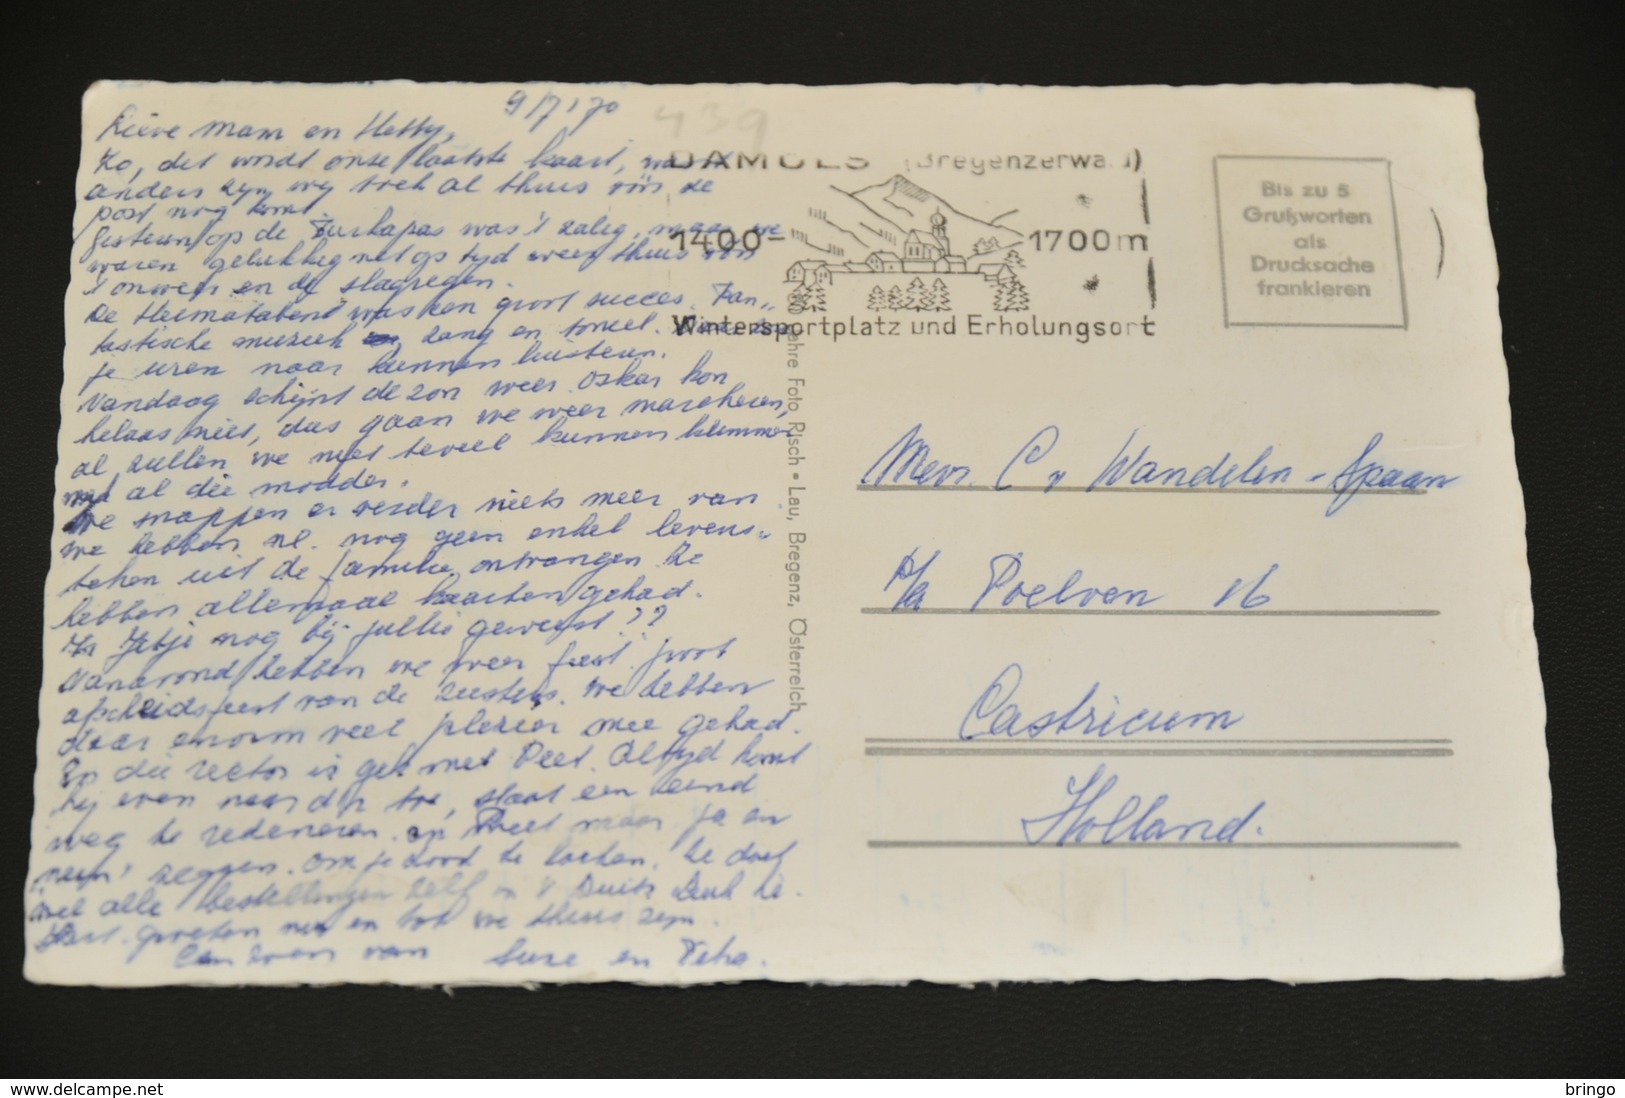 9/7/'70
Lieve Mam en Hetty,
Zo, dit wordt onze laatste kaart,
anders zijn wij toch al thuis vóór de
post nog komt
Gisteren op de Furkapas was 't zalig, maar we
waren gelukkig net op tijd weer thuis vóór
't onweer en de slagregen.
De Heimatabent was een groot succes. Fan-
tastische muziek zang en toneel.
je uren naar kunnen luisteren.
Vandaag schijnt de zon weer. Oskar kon
helaas niet, dus gaan we weer marcheren,
al zullen we niet teveel kunnen klimmen
met al die modder.
We snappen er verder niets meer van
we hebben nl. nog geen enkel levens-
teken uit de familie ontvangen. Ze
hebben allemaal kaarten gehad.
Is Jetje nog bij jullie geweest??
Vanavond hebben we weer feest. Groot
afscheidsfeest van de zusters. We hebben
daar enorm veel plezier mee gehad.
En die rector is gek met Peet. Altijd komt
hij even naar d'r toe, staat een eind
weg te redeneren en Peet maar ja en
neen zeggen. Om je dood te lachen. Ze doet
wel alle bestellingen zelf in 't Duits. Leuk hè.
Hart. groeten en tot we thuis zijn.
van Suze en
439
DAMÜLS (Bregenzerwald)
1400-1700m
Wintersportplatz und Erholungsort
Bis zu 5
Grußworten
als
Drucksache
frankieren
Jahre Foto Risch • Lau, Bregenz, Österreich
Mevr. C v Wandelen - Spaan
p/a Poelven 16
Castricum
Holland.
www.delcampe.net
bringo